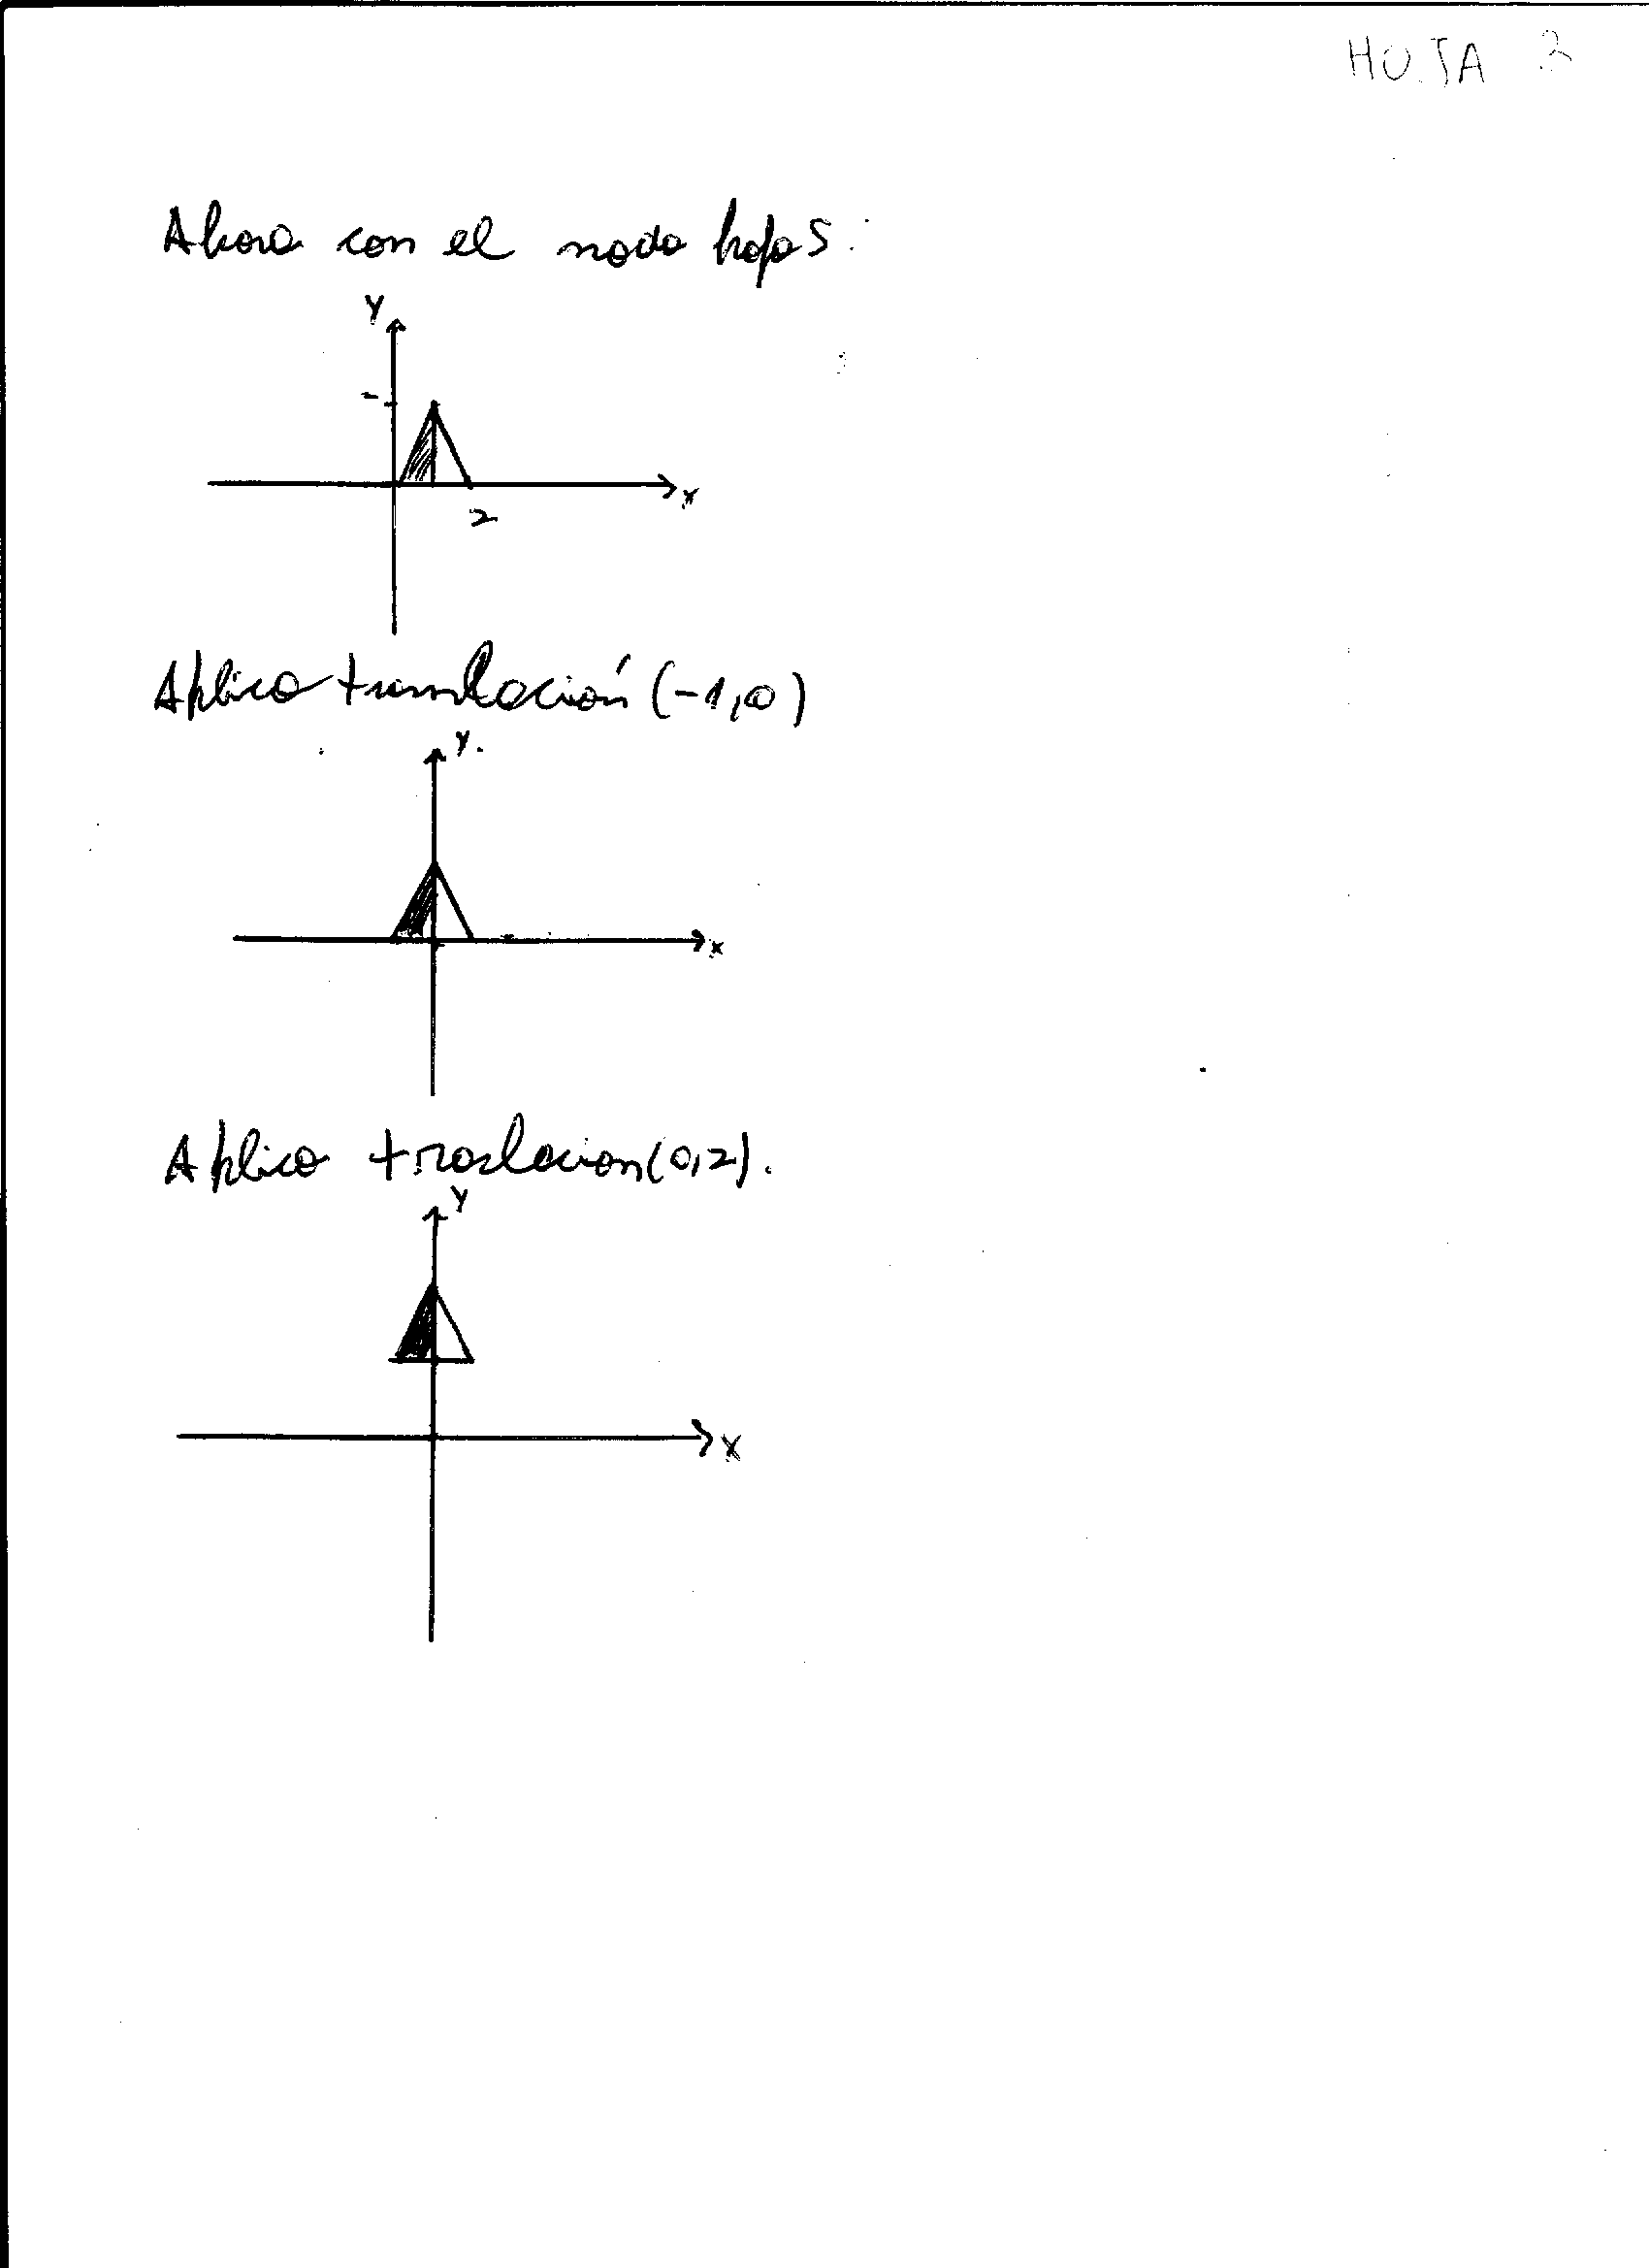 HOJA 2
Ahora con el nodo hoja 5.
y
x
2
Aplico translación (-1,0)
y.
x
Aplico traslacion (0,2).
y
x